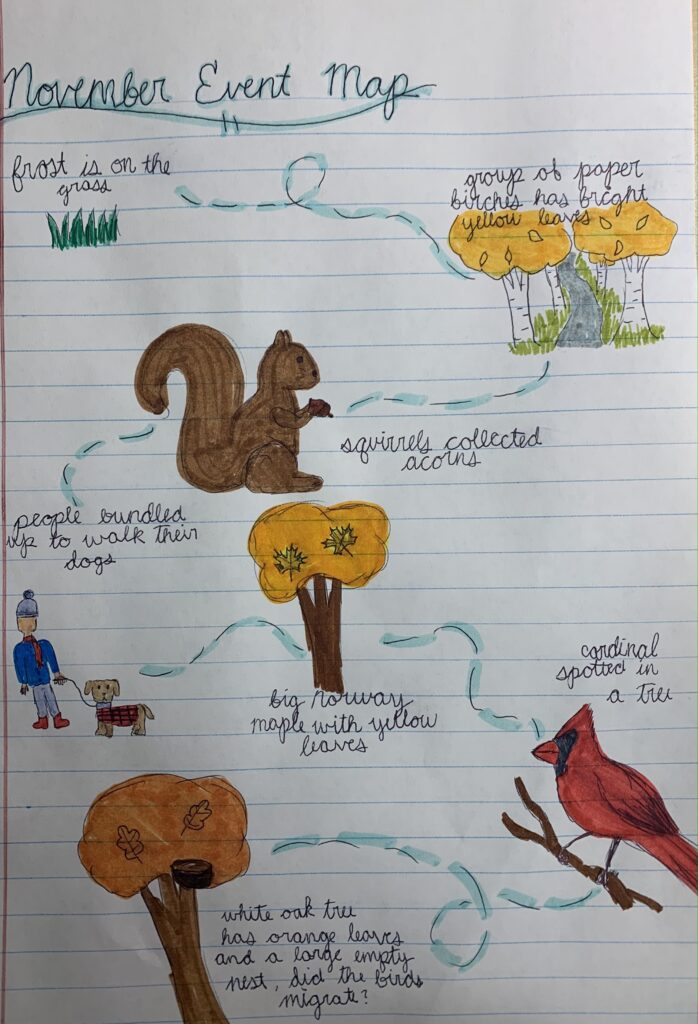 November Event Map
frost is on the
grass
group of paper
birches has bright
yellow leaves
squirrels collected
acorns
people bundled
up to walk their
dogs
big norway
maple with yellow
leaves
cardinal
spotted in
a tree
white oak tree
has orange leaves
and a large empty
nest, did the birds
migrate?